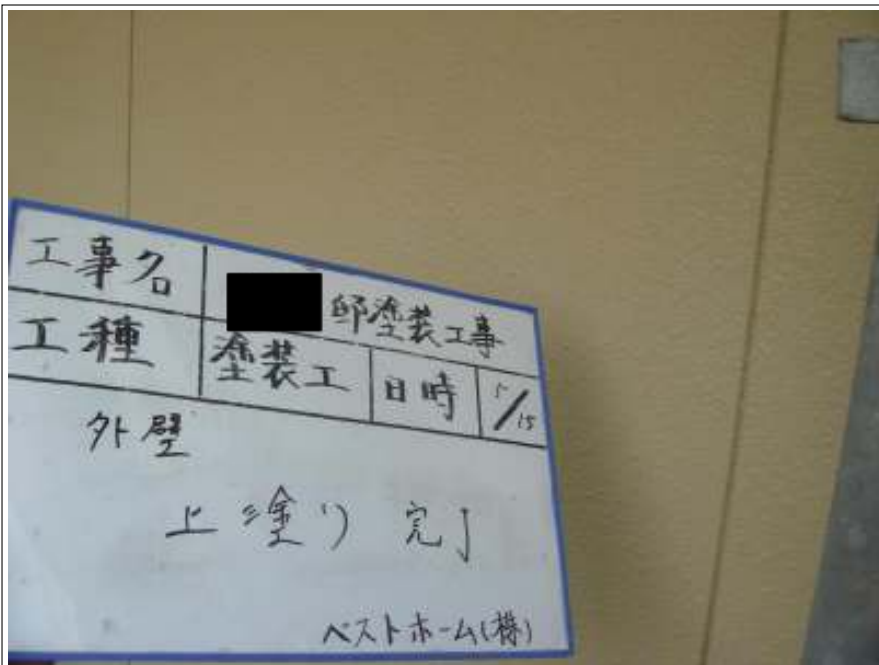 工事名 邸塗装工事
工種 塗装工 日時 5/15
外壁
上塗り 完了
ベストホーム(株)